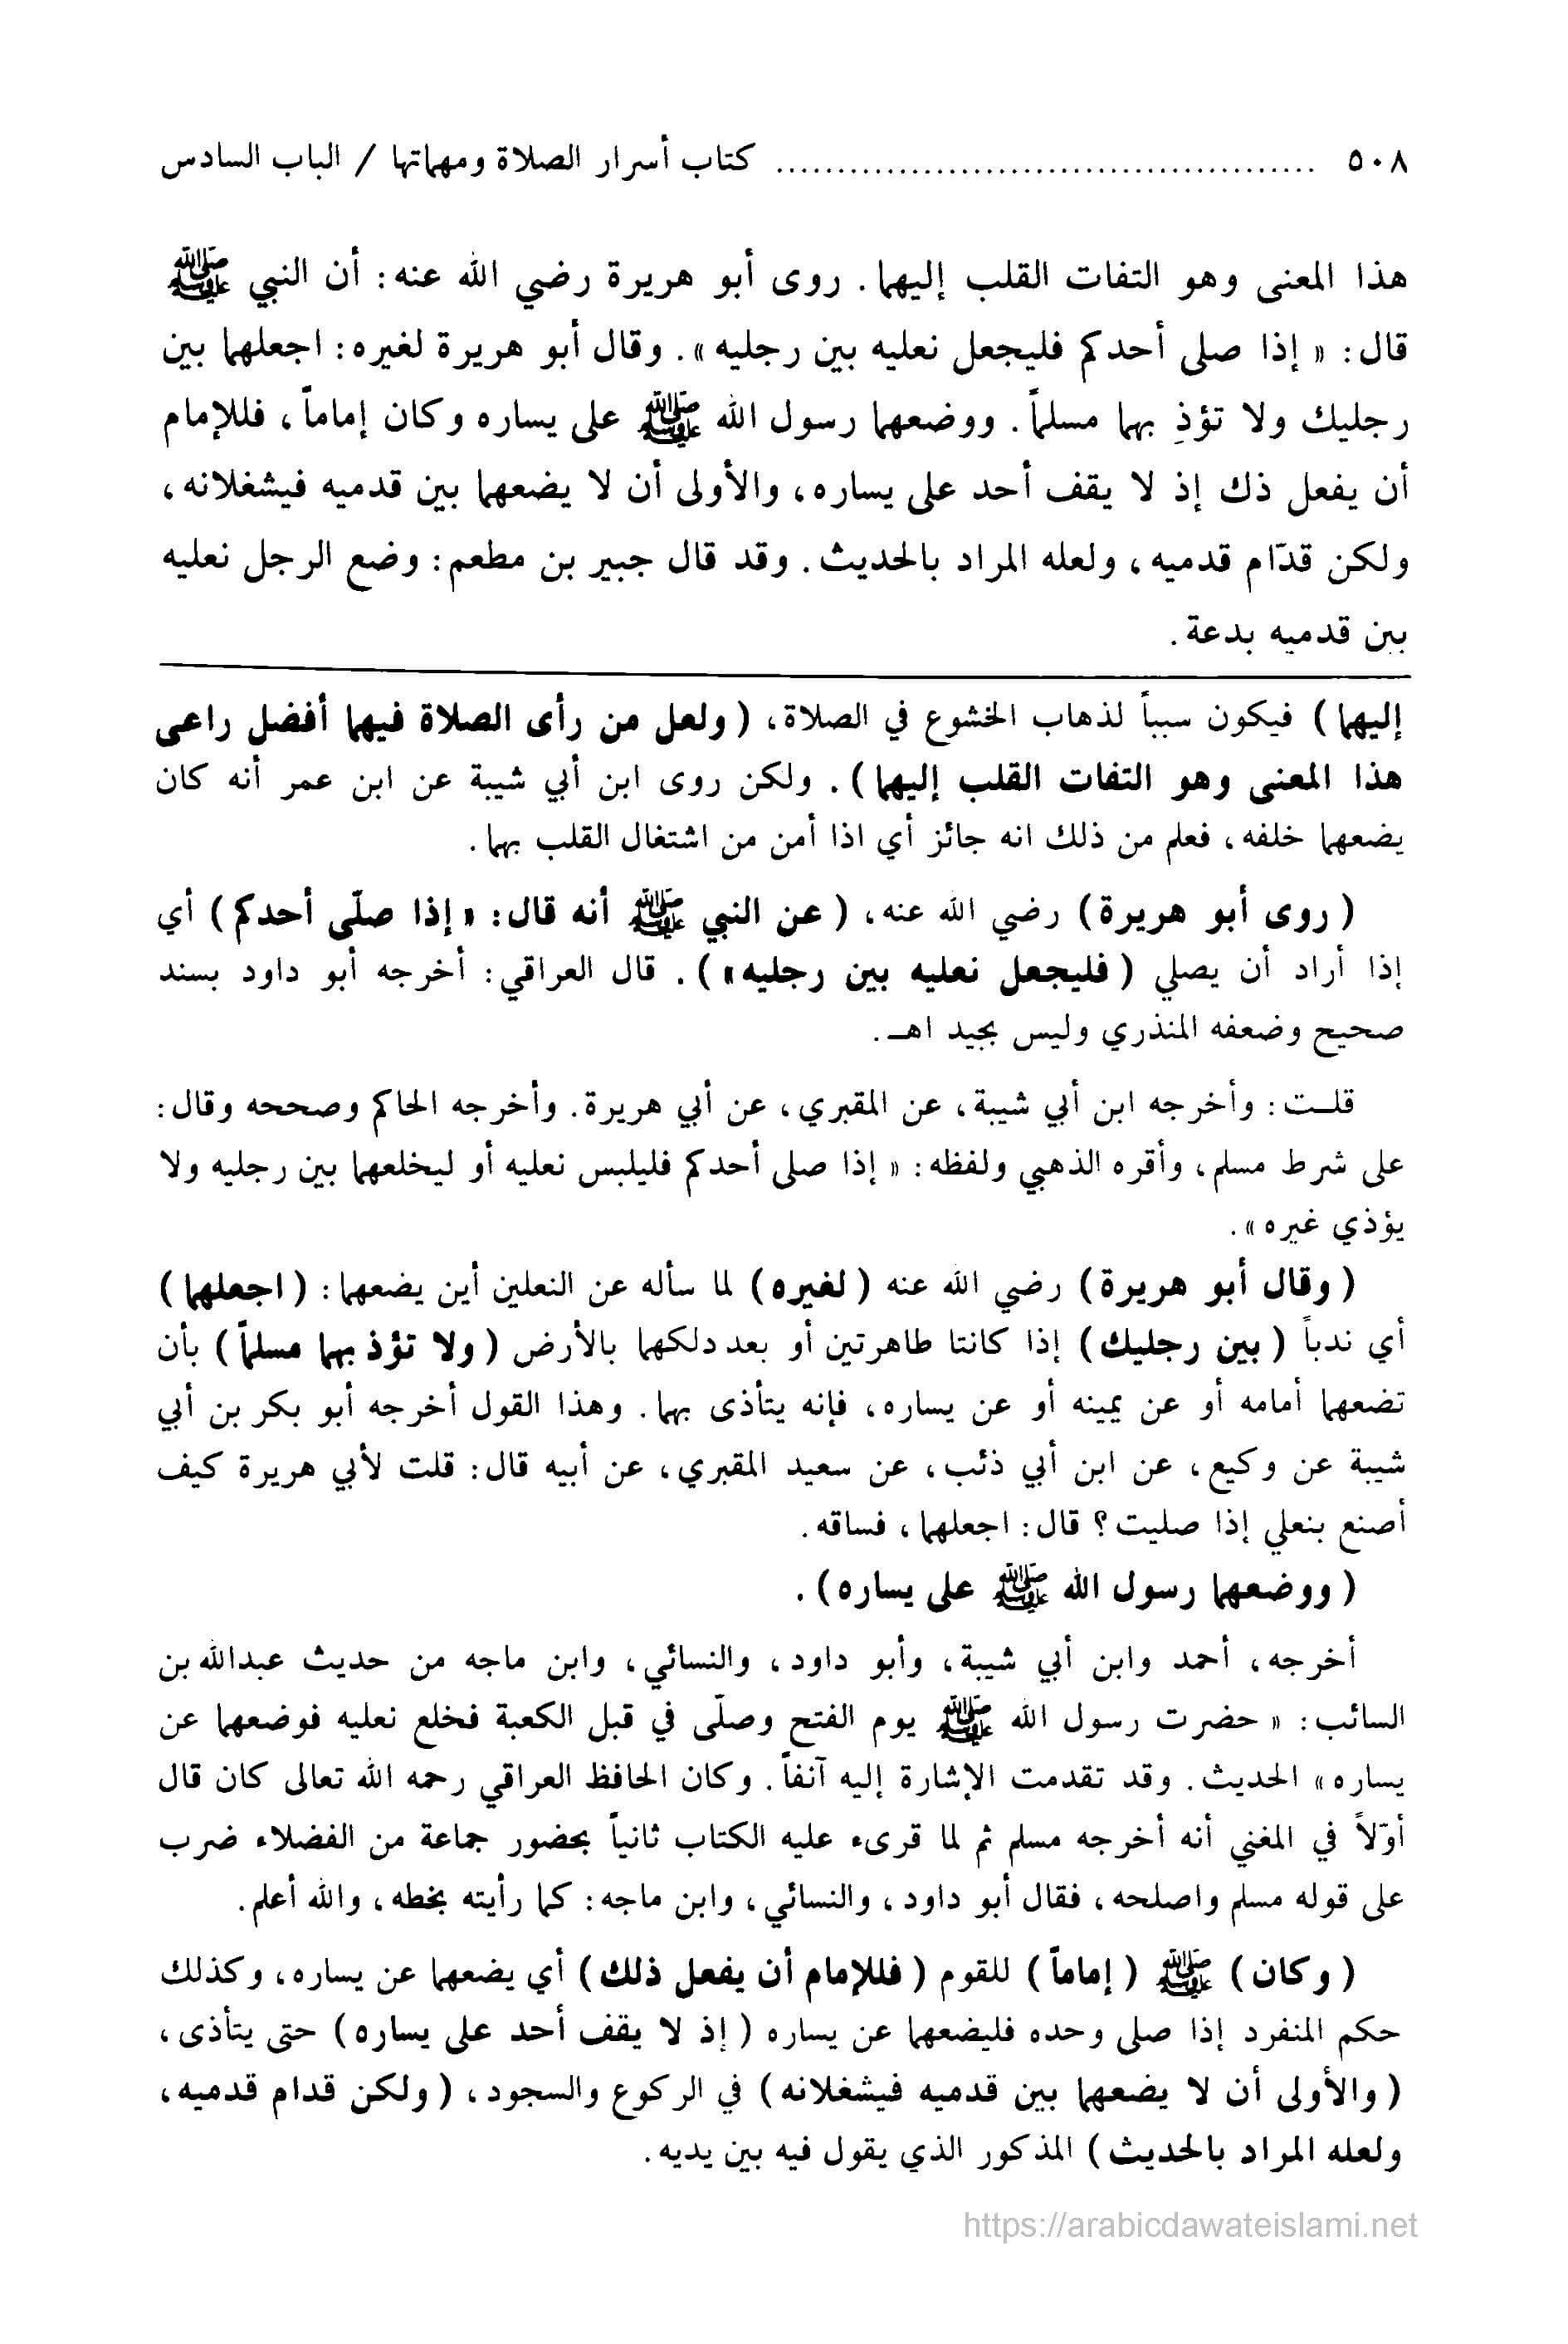 ٥٠٨ ............................................ كتاب أسرار الصلاة ومهماتها / الباب السادس
هذا المعنى وهو التفات القلب إليهما. روى أبو هريرة رضي الله عنه: أن النبي ﷺ
قال: « إذا صلى أحدكم فليجعل نعليه بين رجليه ». وقال أبو هريرة لغيره: اجعلهما بين
رجليك ولا تؤذِ بهما مسلماً. ووضعهما رسول الله ﷺ على يساره وكان إماماً، فللإمام
أن يفعل ذك إذ لا يقف أحد على يساره، والأولى أن لا يضعهما بين قدميه فيشغلانه،
ولكن قدّام قدميه، ولعله المراد بالحديث. وقد قال جبير بن مطعم: وضع الرجل نعليه
بين قدميه بدعة.
إليهما) فيكون سبباً لذهاب الخشوع في الصلاة، (ولعل من رأى الصلاة فيهما أفضل راعى
هذا المعنى وهو التفات القلب إليهما). ولكن روى ابن أبي شيبة عن ابن عمر أنه كان
يضعهما خلفه، فعلم من ذلك انه جائز أي اذا أمن من اشتغال القلب بهما.
(روى أبو هريرة) رضي الله عنه، (عن النبي ﷺ أنه قال: « إذا صلّى أحدكم) أي
إذا أراد أن يصلي (فليجعل نعليه بين رجليه»). قال العراقي: أخرجه أبو داود بسند
صحيح وضعفه المنذري وليس بجيد اهـ.
قلـت: وأخرجه ابن أبي شيبة، عن المقبري، عن أبي هريرة. وأخرجه الحاكم وصححه وقال:
على شرط مسلم، وأقره الذهبي ولفظه: « إذا صلى أحدكم فليلبس نعليه أو ليخلعهما بين رجليه ولا
يؤذي غيره ».
(وقال أبو هريرة) رضي الله عنه (لغيره) لما سأله عن النعلين أين يضعهما: (اجعلهما)
أي ندباً (بين رجليك) إذا كانتا طاهرتين أو بعد دلكهما بالأرض (ولا تؤذ بهما مسلماً) بأن
تضعهما أمامه أو عن يمينه أو عن يساره، فإنه يتأذى بهما. وهذا القول أخرجه أبو بكر بن أبي
شيبة عن وكيع، عن ابن أبي ذئب، عن سعيد المقبري، عن أبيه قال: قلت لأبي هريرة كيف
أصنع بنعلي إذا صليت؟ قال: اجعلهما، فساقه.
(ووضعهما رسول الله ﷺ على يساره).
أخرجه، أحمد وابن أبي شيبة، وأبو داود، والنسائي، وابن ماجه من حديث عبدالله بن
السائب: « حضرت رسول الله ﷺ يوم الفتح وصلّى في قبل الكعبة فخلع نعليه فوضعهما عن
يساره» الحديث. وقد تقدمت الإشارة إليه آنفاً. وكان الحافظ العراقي رحمه الله تعالى كان قال
أوّلاً في المغني أنه أخرجه مسلم ثم لما قرىء عليه الكتاب ثانياً بحضور جماعة من الفضلاء ضرب
على قوله مسلم واصلحه، فقال أبو داود، والنسائي، وابن ماجه: كما رأيته بخطه، والله أعلم.
(وكان) ﷺ (إماماً) للقوم (فللإمام أن يفعل ذلك) أي يضعهما عن يساره، وكذلك
حكم المنفرد إذا صلى وحده فليضعهما عن يساره (إذ لا يقف أحد على يساره) حتى يتأذى،
(والأولى أن لا يضعهما بين قدميه فيشغلانه) في الركوع والسجود، (ولكن قدام قدميه،
ولعله المراد بالحديث) المذكور الذي يقول فيه بين يديه.
https://arabicdawateislami.net